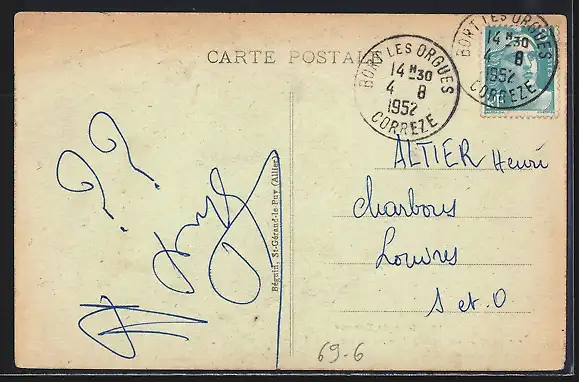 CARTE POSTALE
BORT LES ORGUES
14 H 30
4 8
1952
CORREZE
BORT LES ORGUES
14 H 30
4 8
1952
CORREZE
? ?
ALTIER Henri
Charbons
Louvres
S et O
Béguin, St-Gérand-le-Puy (Allier)
69-6